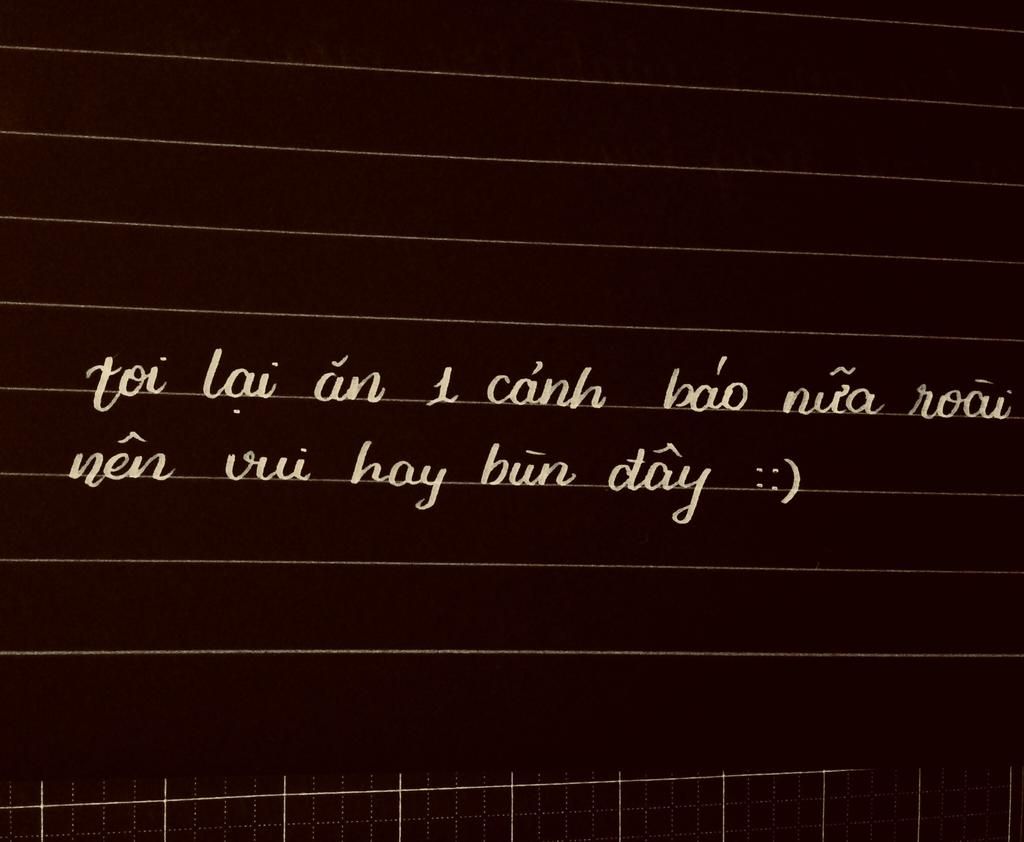 toi lại ăn 1 cảnh báo nữa roài
nên vui hay bùn đây ::)